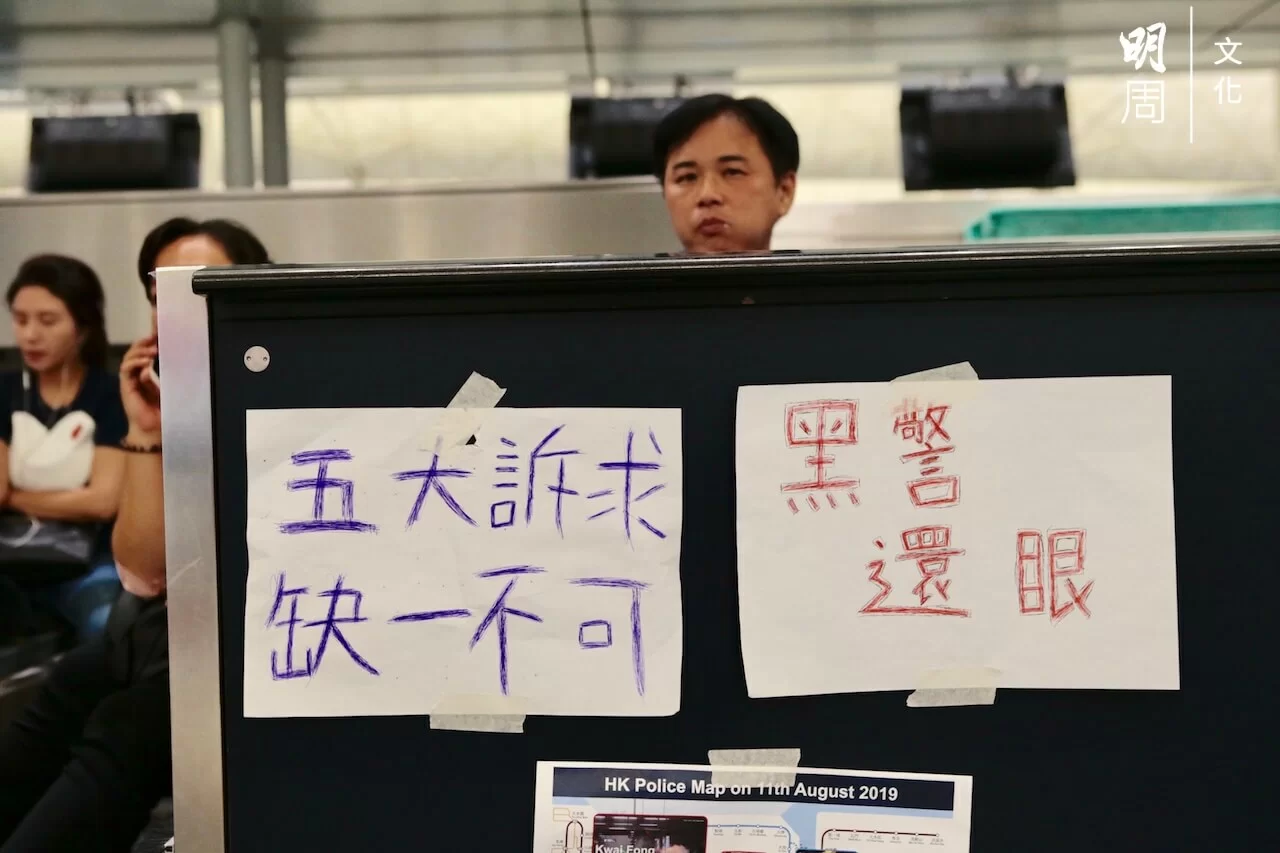 明周
文化
五大訴求
缺一不可
黑警
還眼
HK Police Map on 11th August 2019
Kwai Fong